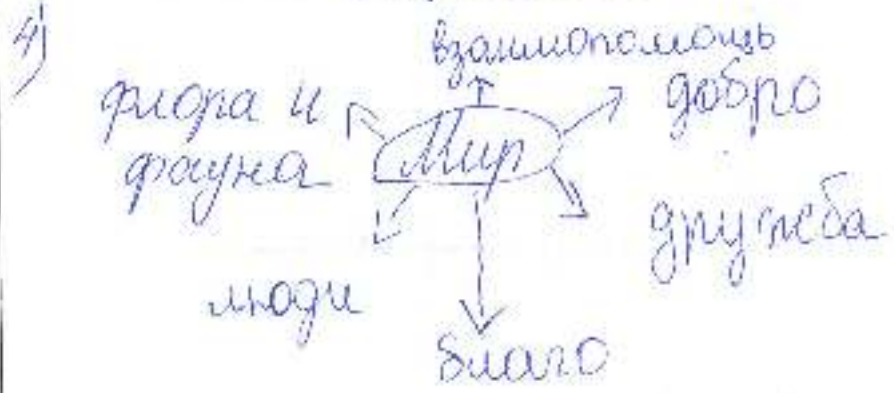 4)
взаимопомощь
флора и
фауна
Мир
добро
дружба
люди
благо